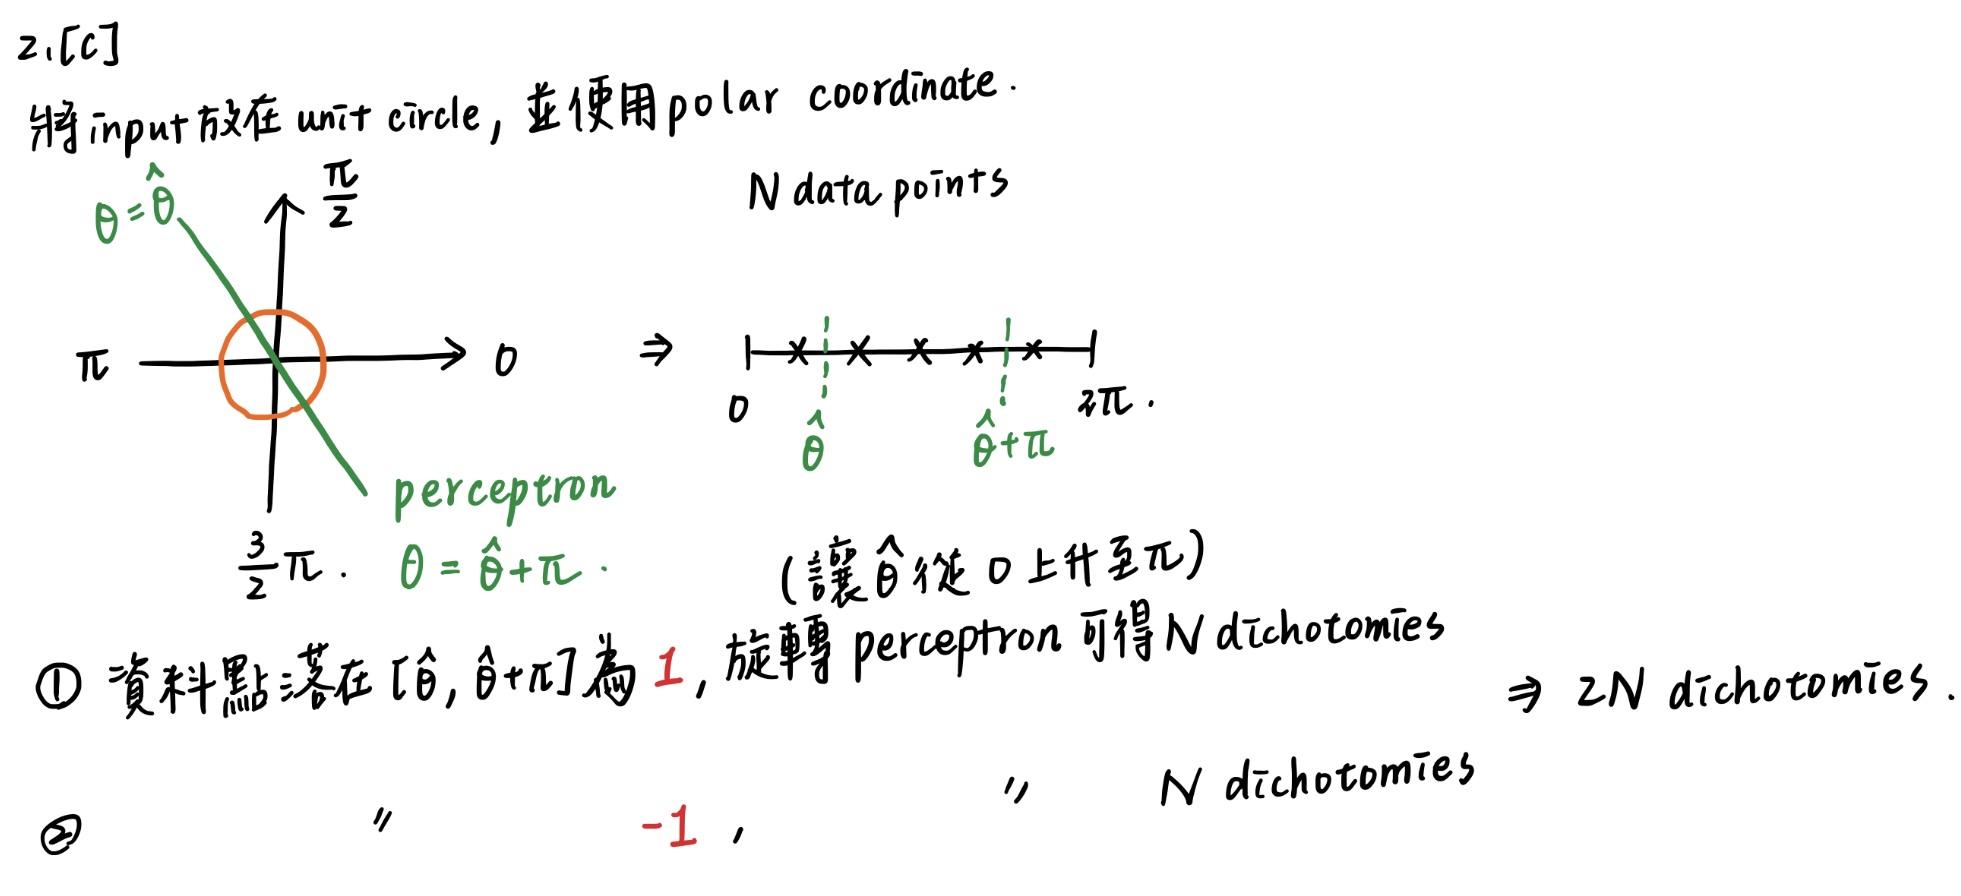 2.[C]
將input放在 unit circle, 並使用polar coordinate.
θ=θ̂
π/2
N data points
π
0
⇒
0
θ̂
θ̂+π
2π.
perceptron
3/2 π.
θ = θ̂+π.
(讓θ̂從 0 上升至π)
① 資料點落在 [θ̂, θ̂+π]為 1, 旋轉 perceptron 可得 N dichotomies
⇒ 2N dichotomies.
② 〃 -1, 〃 N dichotomies